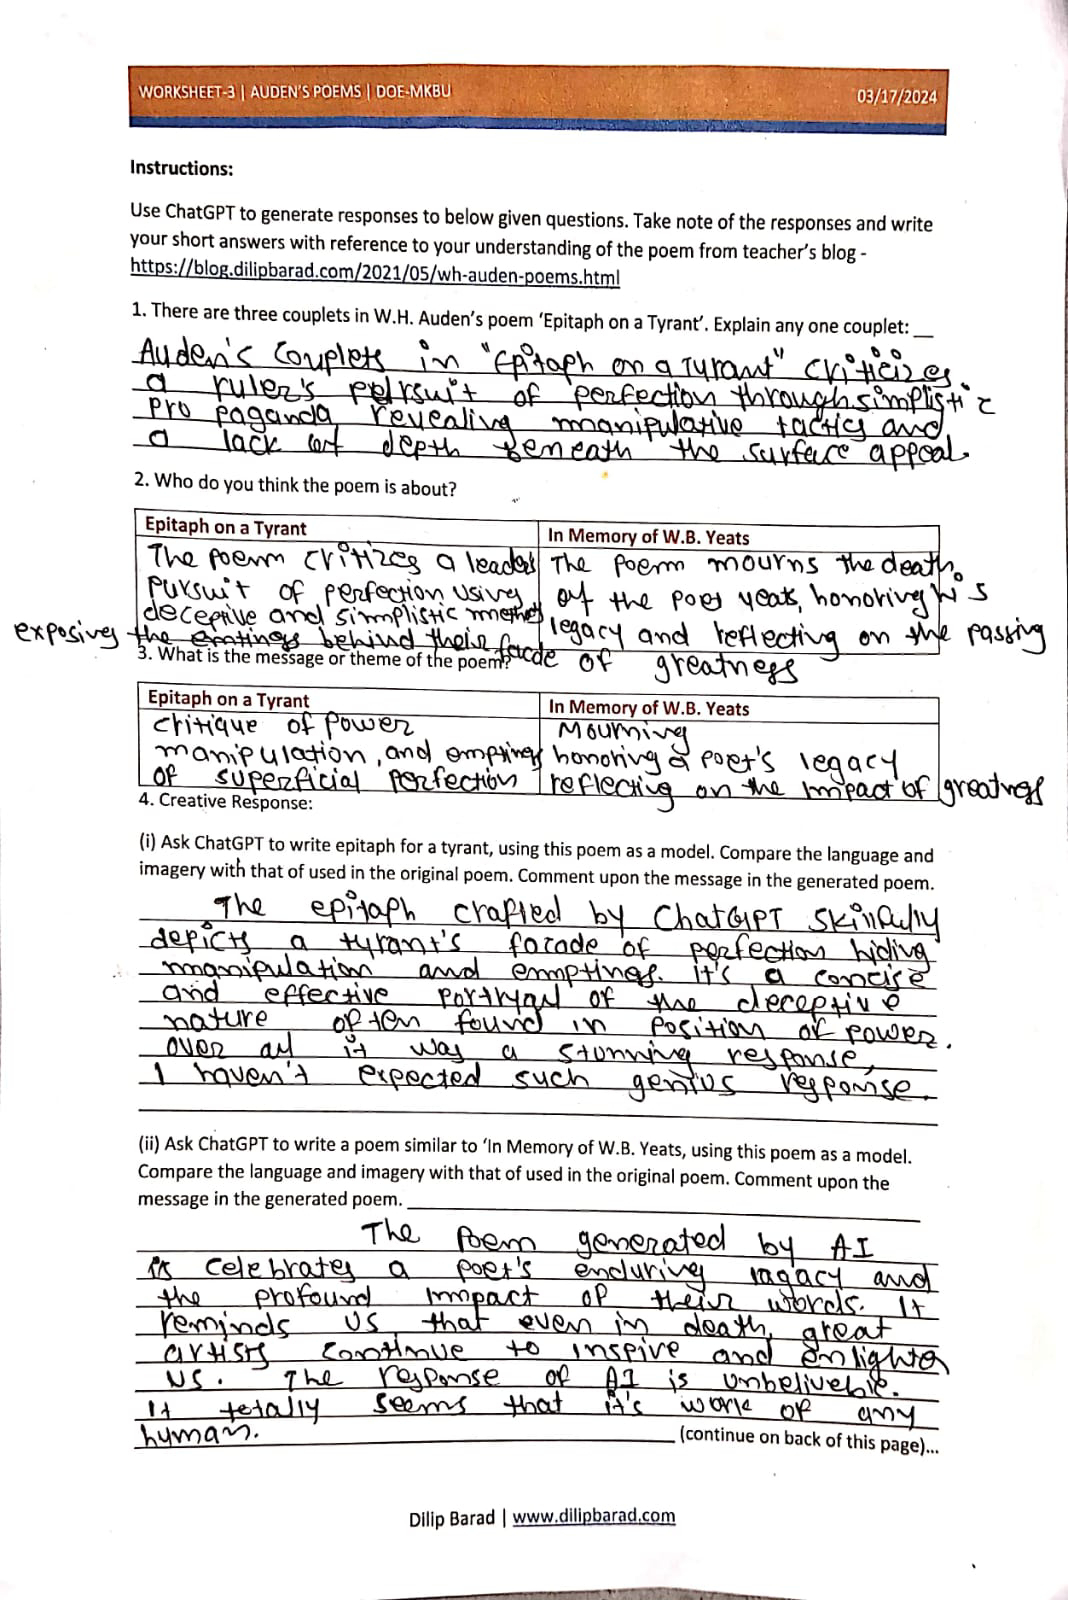 WORKSHEET-3 | AUDEN'S POEMS | DOE-MKBU 03/17/2024
Instructions:
Use ChatGPT to generate responses to below given questions. Take note of the responses and write
your short answers with reference to your understanding of the poem from teacher's blog -
https://blog.dilipbarad.com/2021/05/wh-auden-poems.html
1. There are three couplets in W.H. Auden's poem 'Epitaph on a Tyrant'. Explain any one couplet: __
Auden's couplets in "Epitaph on a Tyrant" criticizes
a ruler's pursuit of perfection through simplistic
propaganda revealing manipulative tactics and
a lack of depth beneath the surface appeal.
2. Who do you think the poem is about?
Epitaph on a Tyrant In Memory of W.B. Yeats
The poem critizes a leader The poem mourns the death
pursuit of perfection using of the poet yeats, honoring his
deceptive and simplistic methods legacy and reflecting on the passing
exposing the emptiness behind their facde of greatness
3. What is the message or theme of the poem?
Epitaph on a Tyrant In Memory of W.B. Yeats
critique of power Mourning
manipulation, and emptiness honoring a poet's legacy
of superficial perfection reflecting on the impact of greatness
4. Creative Response:
(i) Ask ChatGPT to write epitaph for a tyrant, using this poem as a model. Compare the language and
imagery with that of used in the original poem. Comment upon the message in the generated poem.
The epitaph crafted by ChatGPT skillfully
depicts a tyrant's facade of perfection hiding
manipulation and emptiness. it's a concise
and effective portrayal of the deceptive
nature often found in position of power.
over all it was a stunning response,
I haven't expected such genius response.
(ii) Ask ChatGPT to write a poem similar to 'In Memory of W.B. Yeats, using this poem as a model.
Compare the language and imagery with that of used in the original poem. Comment upon the
message in the generated poem.
The poem generated by AI
is celebrates a poet's enduring lagacy and
the profound impact of their words. It
reminds us that even in death, great
artists continue to inspire and enlighten
us. The response of AI is unbeliveble.
It totally seems that it's work of any
human. (continue on back of this page)...
Dilip Barad | www.dilipbarad.com